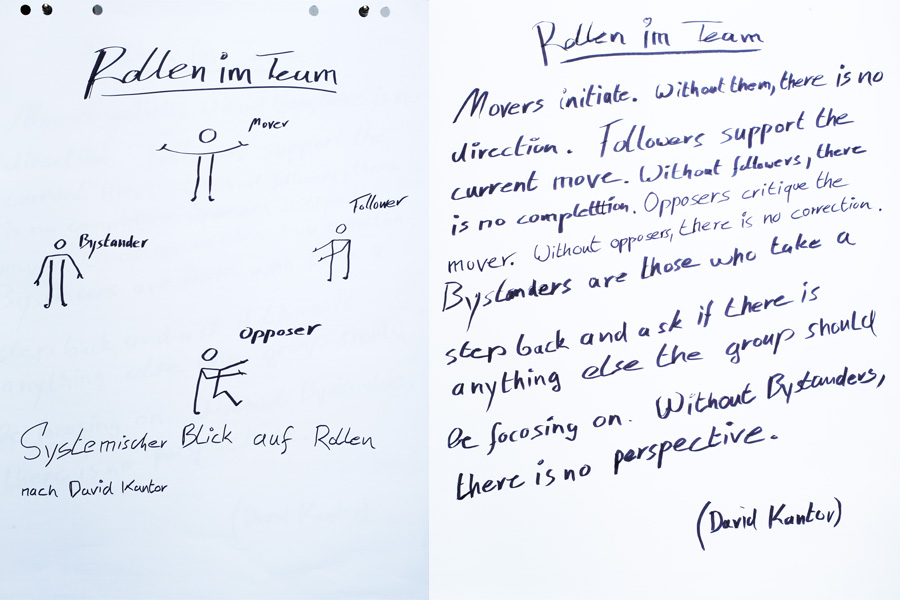 Rollen im Team
Mover
Follower
Bystander
Opposer
Systemischer Blick auf Rollen
nach David Kantor
Rollen im Team
Movers initiate. Without them, there is no
direction. Followers support the
current move. Without followers, there
is no complettion. Opposers critique the
mover. Without opposers, there is no correction.
Bystanders are those who take a
step back and ask if there is
anything else the group should
be focosing on. Without Bystanders,
there is no perspective.
(David Kantor)